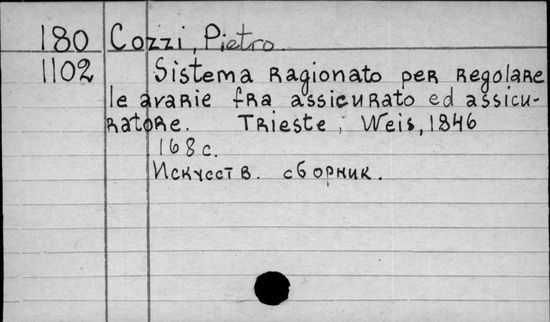 180 Cozzi, Pietro.
1102 Sistema ragionato per regolare
le avarie fra assicurato ed assicu-
ratore. Trieste, Weis, 1846
168 с.
Искусств. сборник.